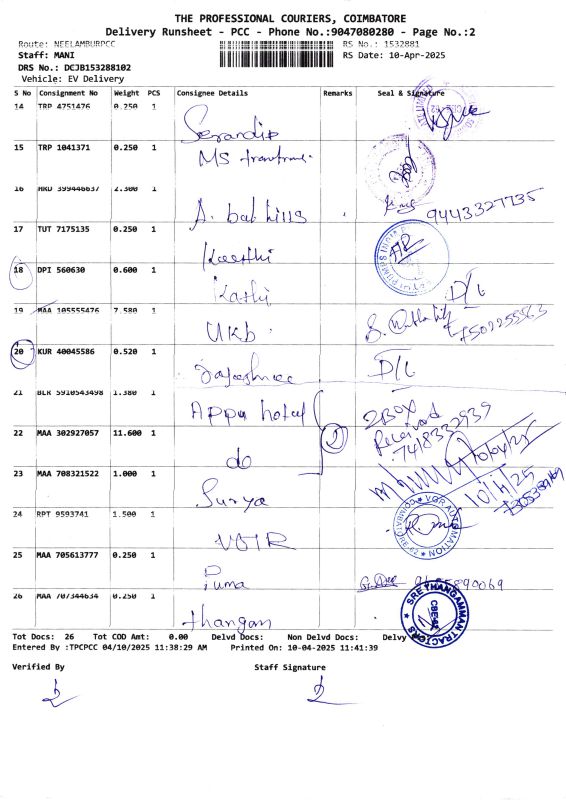 THE PROFESSIONAL COURIERS, COIMBATORE
Delivery Runsheet - PCC - Phone No.:9047080280 - Page No.:2
Route: NEELAMBURPCC RS No.: 1532881
Staff: MANI RS Date: 10-Apr-2025
DRS No.: DCJB153288102
Vehicle: EV Delivery
S No Consignment No Weight PCS Consignee Details Remarks Seal & Signature
14 TRP 4751476 0.250 1
Serandip
15 TRP 1041371 0.250 1
MS
16 HKD 399446637 2.300 1
A. bat hills 9443327735
17 TUT 7175135 0.250 1
Keerthi
18 DPI 560630 0.600 1
Kathi D/L
19 MAA 105555476 7.580 1
UKb
20 KUR 40045586 0.520 1
D/L
21 BLR 5910543498 1.380 1
Appu hotel 2BOX
Received
7418332939
22 MAA 302927057 11.600 1
do 2 10/04/25
23 MAA 708321522 1.000 1
Surya 10/4/25
24 RPT 9593741 1.500 1
VGR AUTOMATION
COIMBATORE-62
25 MAA 705613777 0.250 1
Puma
26 MAA 707344634 0.250 1
thangam
SRE THANGAMMAN TRACTORS
CBE-62
Tot Docs: 26 Tot COD Amt: 0.00 Delvd Docs: Non Delvd Docs: Delvy
Entered By :TPCPCC 04/10/2025 11:38:29 AM Printed On: 10-04-2025 11:41:39
Verified By Staff Signature